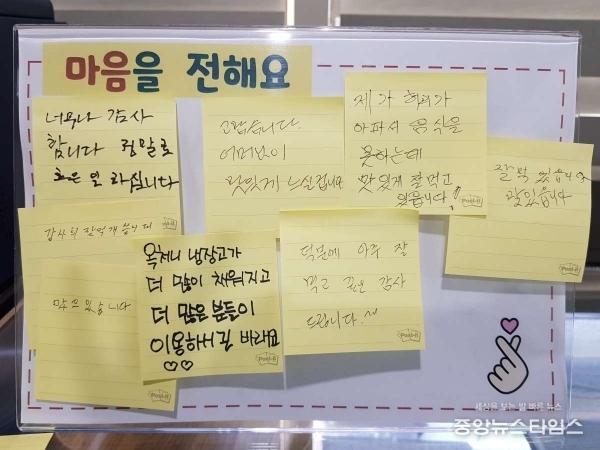 마음을 전해요
너무나 감사
합니다 정말로
좋은 일 하십니다
고맙습니다.
어머님이
맛있게 드실겁니다
제가 허리가
아파서 음식을
못하는데
맛있게 잘먹고
있습니다!
잘먹 었읍니다
맛있읍니다
감사히 잘먹게 습니다
먹고있습니다
옥천니 냉장고가
더 많이 채워지고
더 많은 분들이
이용하시길 바래요
♡♡
덕분에 아주 잘
먹고 갚은 감사
드립니다.~
세상을 보는 밝 빠른 뉴스
중앙뉴스타임스